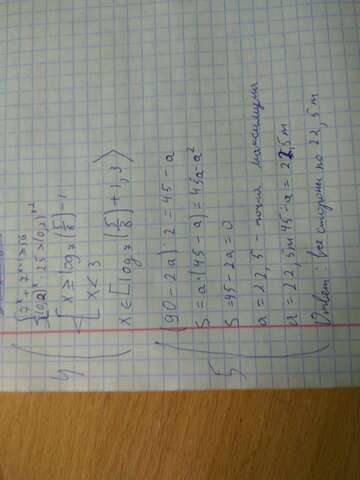 4) { 7^x + 7^(x-1) ≥ 56
(0,2)^x · 25 > (0,2)
x ≥ log₇(5/8) - 1
x < 3
x ∈ [log₇(5/8) + 1, 3)
5) (90 - 2a) : 2 = 45 - a
S = a · (45 - a) = 45a - a²
S = 45 - 2a = 0
a = 22,5 - точка максимума
a = 22,5м 45 - a = 22,5м
Ответ: все стороны по 22,5 м